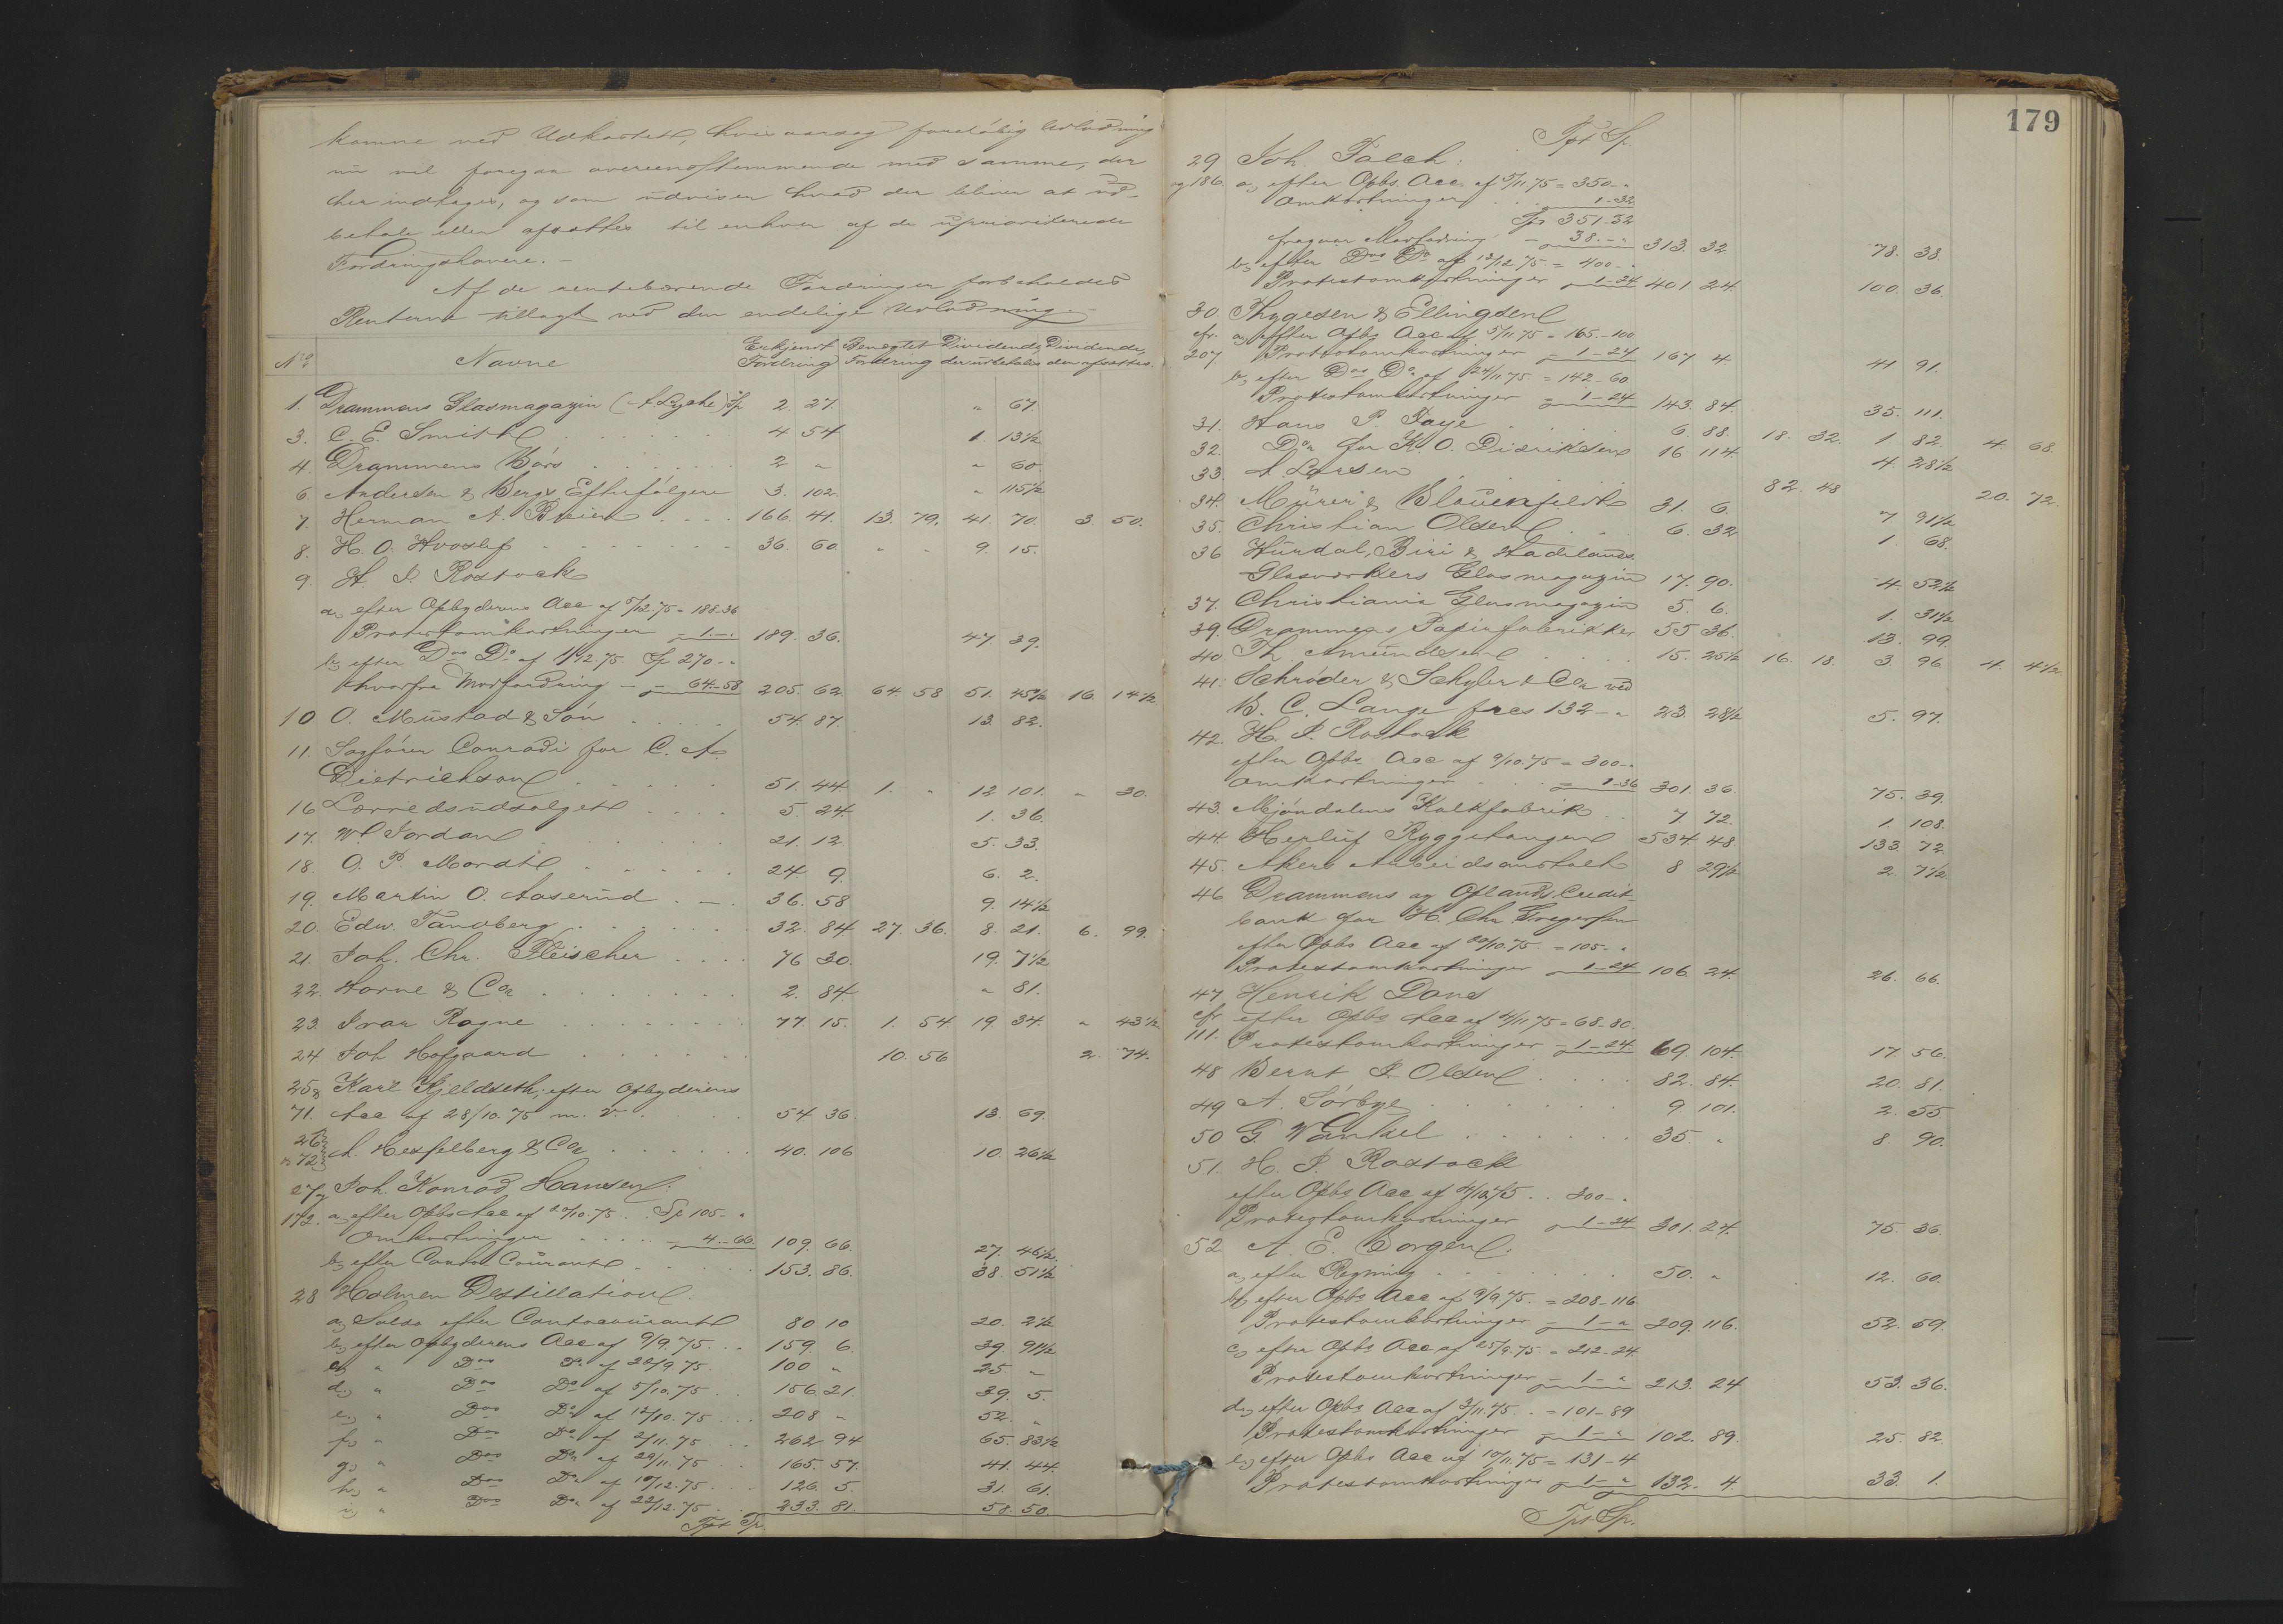 komme ned Udkastet, hvis aarsag foreløbig Udlodning
nu vil foregaa overeensstemmende med samme, der
her indtages, og som udviser hvad der bliver at ud-
betale eller afsættes til enhver af de uprioriterede
Fordringshavere.-
Af de rentebærende Fordringer forbeholdes
Renterne tillagt ved den endelige Udlodning.-
No Navne Erkjendt Fordring Benegtet Fordring Dividende, der udbetales Dividende, der afsættes.
1. Drammens Glasmagazin (A. Lyche) Sp 2. 27. " 67.
3. C. E. Smith 4 54 1. 13½
4. Drammens Børs 2 " " 60.
6. Andersen & Bergs Efterfølgere 3. 102. " 115½
7. Herman A. Breien 166. 41. 13. 79. 41. 70. 3. 50.
8. H. O. Hvoslef 36. 60. " " 9. 15.
9. H. I. Rostock
a, efter Opbyderens Acc af 5/12.75 = 188.36
Protestomkostninger = 1.-" 189. 36. 47. 39.
b, efter Dos Do af 1/12.75 Sp 270-"
hvorfra Modfordring - = 64-58 205. 62. 64. 58 51. 45½ 16. 14½
10 O. Mustad & Søn 54. 87. 13. 82.
11. Sagfører Conradi for C. A.
Dietrichson 51. 44 1. " 12 101. " 30.
16 Lærredsudsalget 5. 24. 1. 36.
17. W. Jordan 21. 12. 5. 33.
18. O. P. Mordt 24. 9. 6. 2.
19. Martin O. Aaserud 36. 58 9. 14½
20. Edw. Tandberg 32. 84 27. 36. 8. 21. 6. 99.
21. Joh. Chr. Fleischer 76 30. 19. 7½
22. Horne & Co 2. 84. " 81.
23. Ivar Rogne 77. 15. 1. 54. 19 34. " 43½
24. Joh Hofgaard 10. 56 2. 74.
25 & Karl Kjeldseth, efter Opbyderens
71. Acc af 28/10.75 m. v. 54. 36. 13. 69.
26 & 72 A. Hesselberg & Co 40. 106 10. 26½
27 og Joh. Konrad Hansen:
172. a, efter Opbs Acc af 20/10.75 Sp 105-"
Omkostninger = 4.-66. 109. 66. 27. 46½
b, efter Conto Courant 153. 86. 38. 51½
28 Holmen Destillation.
a, Saldo efter Contocourant 80 10 20. 2½
b, efter Opbyderens Acc af 9/9.75. 159. 6. 39. 91½
c, " Dos Do af 22/9.75. 100 " 25 "
d, " Dos Do af 5/10.75 156. 21. 39. 5.
e, " Dos Do af 12/10.75 208 " 52. "
f, " Dos Do af 2/11.75 262 94 65. 83½
g, " Dos Do af 20/11.75 165. 57. 41. 44.
h, " Dos Do af 10/12.75 126. 5. 31. 61.
i, " Dos Do af 22/12.75 233. 81. 58. 50.
Tpt Sp.
179
Tpt Sp.
29 Joh. Falch:
og 186. a, efter Opbs. Acc. af 5/11.75 = 350-"
Omkostninger 1-32
Sp 351-32
fragaar Modfordring - 38.-" 313. 32. 78. 38.
b, efter Dos Do af 12/12.75 = 400-"
Protestomkostninger = 1-24 401 24. 100. 36.
30. Thygesen & Ellingsen
cfr. a, efter Opbs Acc af 5/11.75 = 165-100
207 Protestomkostninger = 1-24 167 4. 41. 91.
b, efter Dos Do af 24/11.75. = 142-60
Protestomkostninger = 1-24 143. 84. 35. 111.
31. Hans P. Faye 6. 88. 18. 32. 1 82. 4. 68.
32. Do for K. O. Didriksen 16 114. 4. 28½
33. A. Larsen 82. 48 20. 72.
34. Mürer & Blauenfeldt 31. 6. 7. 91½
35. Christian Olsen 6. 32 1. 68.
36 Hurdal, Biri & Hadelands
Glasværkers Glasmagazin 17. 90. 4. 52½
37. Christiania Glasmagazin 5. 6. 1. 31½
39. Drammens Papirfabrikker 55 36. 13. 99.
40 Th. Amundsen 15. 25½ 16. 18. 3. 96. 4. 4½
41. Schrøder & Schyler & Co ved
B. C. Lange frcs 132-" 23. 28½ 5. 97.
42. H. I. Rostock
efter Opbs Acc af 9/10.75 = 300-"
Omkostninger = 1-36 301. 36. 75. 39.
43. Mjøndalens Kalkfabrik 7 72. 1. 108.
44. Herluf Ryggehaugen 534. 48. 133. 72.
45. Akers Arbeidsanstalt 8 29½ 2. 7½
46. Drammens og Oplands Credit-
bank for H. Chr. Gregersen
efter Opbs Acc af 20/10.75. = 105-"
Protestomkostninger = 1-24 106. 24. 26. 66.
47 Henrik Dons
cfr efter Opbs Acc af 4/11 75 = 68-80.
111. Protestomkostninger = 1-24. 69. 104. 17. 56.
48 Bernt I. Olsen 82. 84. 20. 81.
49 A. Sørbye 9. 101. 2. 55.
50 G. Wankel 35. " 8. 90.
51. H. I. Rostock
efter Opbs Acc af 4/12.75 300-"
Protestomkostninger = 1-24 301. 24. 75. 36.
52 A. E. Borgen.
a, efter Regning 50. " 12. 60.
b, efter Opbs Acc af 9/9.75. = 208-116.
Protestomkostninger = 1-" 209. 116. 52. 59.
c, efter Opbs Acc af 25/9.75. = 212-24.
Protestomkostninger = 1-" 213. 24 53. 36.
d, efter Opbs Acc af 3/11.75. = 101-89
Protestomkostninger = 1-" 102. 89. 25. 82
e, efter Opbs Acc af 10/11.75 = 131-4
Protestomkostninger = 1-" 132. 4. 33. 1.
Tpt. Sp.